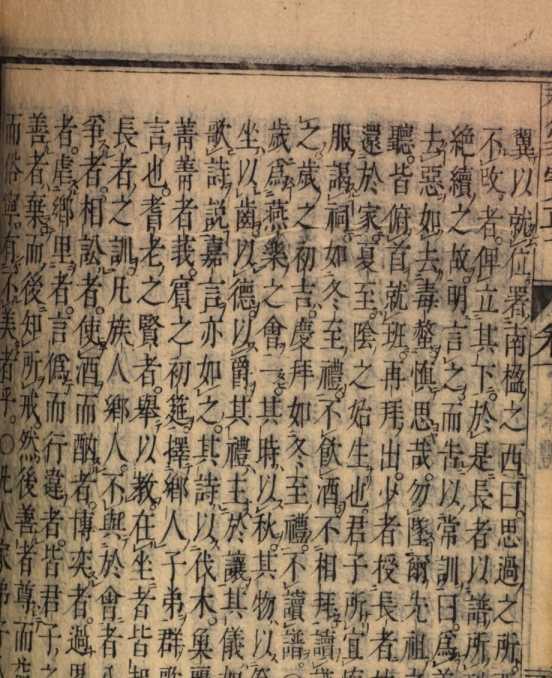 翼以就位署南楹之西曰思過之所
不改者俾立其下於是長者以譜所
絕續之故明言之而告以常訓曰爲
去惡如去毒螫愼思哉勿墜爾先祖
聽皆俯首就班再拜出少者授長者
還於家夏至陰之始生也君子所宜
服謁祠如冬至禮不飲酒不相拜讀
之歲之初吉慶拜如冬至禮不讀譜
歲爲燕樂之會一其時以秋其物以
坐以齒以德以爵其禮主於讓其儀如
歌詩說嘉言亦如之其詩以伐木
菁菁者莪賓之初筵擇鄉人子弟群歌
言也耆老之賢者舉以教在坐者皆
長者之訓凡族人鄉人不與於會者
爭者相訟者使酒而酗者博奕者過
者虐鄉里者言僞而行違者皆君子之
善者棄而後知所戒然後善者尊而
而俗無有不美者乎〇凡人家弟子